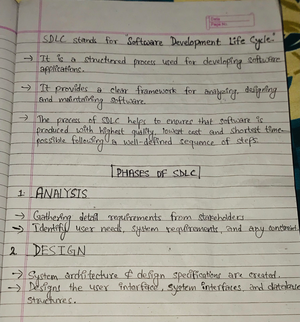 SDLC stands for "Software Development Life Cycle"
→ It is a structured process used for developing software
applications.
→ It provides a clear framework for analysing, designing
and maintaining software.
→ The process of SDLC helps to ensures that software is
produced with highest quality, lowest cost and shortest time
possible following a well-defined sequence of steps.
PHASES OF SDLC
1. ANALYSIS
→ Gathering detail requirements from stakeholders
→ Identify user needs, system requirements, and any
2. DESIGN
→ System architecture & design specifications are created.
→ Designs the user interface, system interfaces, and database
structures.